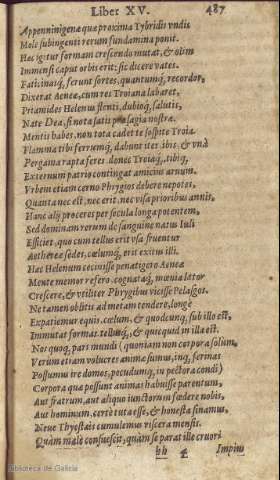 Liber XV. 487
Appenninigenæ quæ proxima Tybridis vndis
Mole sub ingenti rerum fundamina ponit.
Hæc igitur formam crescendo mutat, & olim
Immensi caput orbis erit: sic dicere vates.
Faticinasq́, ferunt sortes, quantumq́, recordor,
Dixerat Aeneæ, cum res Troiana labaret,
Priamides Helenus flenti, dubioq́, salutis,
Nate Dea, si nota satis præsagia nostræ.
Mentis habes, non tota cadet te sospite Troia.
Flamma tibi ferrumq́, dabunt iter. ibis. & vnà
Pergama rapta feres. donec Troiæq́, tibiq́,
Externum patrio contingat amicius aruum.
Vrbem etiam cerno Phrygios debere nepotes,
Quanta nec est, nec erit, nec visa prioribus annis.
Hanc alij proceres per secula longa potentem,
Sed dominam rerum de sanguine natus Iuli
Efficiet, quo cum tellus erit vsa fruentur
Aethereæ sedes, cœlumq́, erit exitus illi.
Hæc Helenum cecinisse penatigero Aeneæ
Mente memor refero. cognataq́, mœnia lætor
Crescere, & vtiliter Phrygibus vicisse Pelasgos.
Ne tamen oblitis ad metam tendere, longè
Expatiemur equis, cœlum, & quodcunq́, sub illo est,
Immutat formas. tellusq́, & quicquid in illa est.
Nos quoq́, pars mundi (quoniam non corpora solùm,
Verùm etiam volucres animæ sumus, inq́, ferinas
Possumus ire domos, pecudumq́, in pectora condi)
Corpora quæ possunt animas habuisse parentum,
Aut fratrum, aut aliquo iunctorum fœdere nobis,
Aut hominum, certè tuta esse, & honesta sinamus,
Neue Thyestæis cumulemus viscera mensis.
Quàm malè consuescit, quàm se parat ille cruori
hh 4 Impius
Biblioteca de Galicia